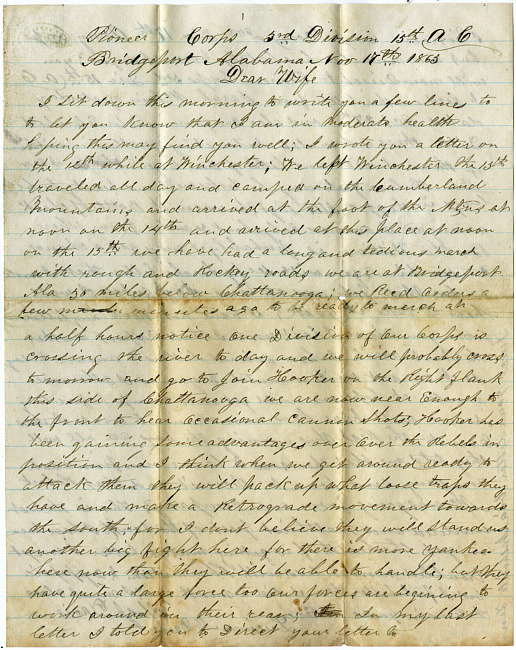 1
Pioneer Corps 3rd Division 15th A C
Bridgeport Alabama Nov 17th 1863
Dear Wife
I Sit down this morning to write you a few lines to
to let you know that I am in moderate health
hoping this may find you well; I wrote you a letter on
the 12th while at Winchester; We left Winchester the 13th
traveled all day and camped on the Cumberland
Mountains and arrived at the foot of the Mtns at
noon on the 14th and arrived at this place at noon
on the 15th we have had a long and tedious march
with rough and Rockey roads we are at Bridgeport
Ala 30 miles below Chattanooga; we Recd orders a
few minutes ago to be ready to march at
a half hours notice One Division of Our Corps is
crossing the river to day and we will probably cross
to morrow and go to Join Hooker on the Right flank
this side of Chattanooga we are now near Enough to
the front to hear Occasional cannon Shots; Hooker has
been gaining Some advantages over Over the Rebels in
position and I think when we get around ready to
attack them they will pack up what loose traps they
have and make a Retrograde movement towards
the South, for I dont believe they will Stand us
another big fight here for there is more Yankees
here now than they will be able to handle; but they
have quite a large force too Our forces are begining to
work around in their rear; In my last
letter I told you to Direct your letter to